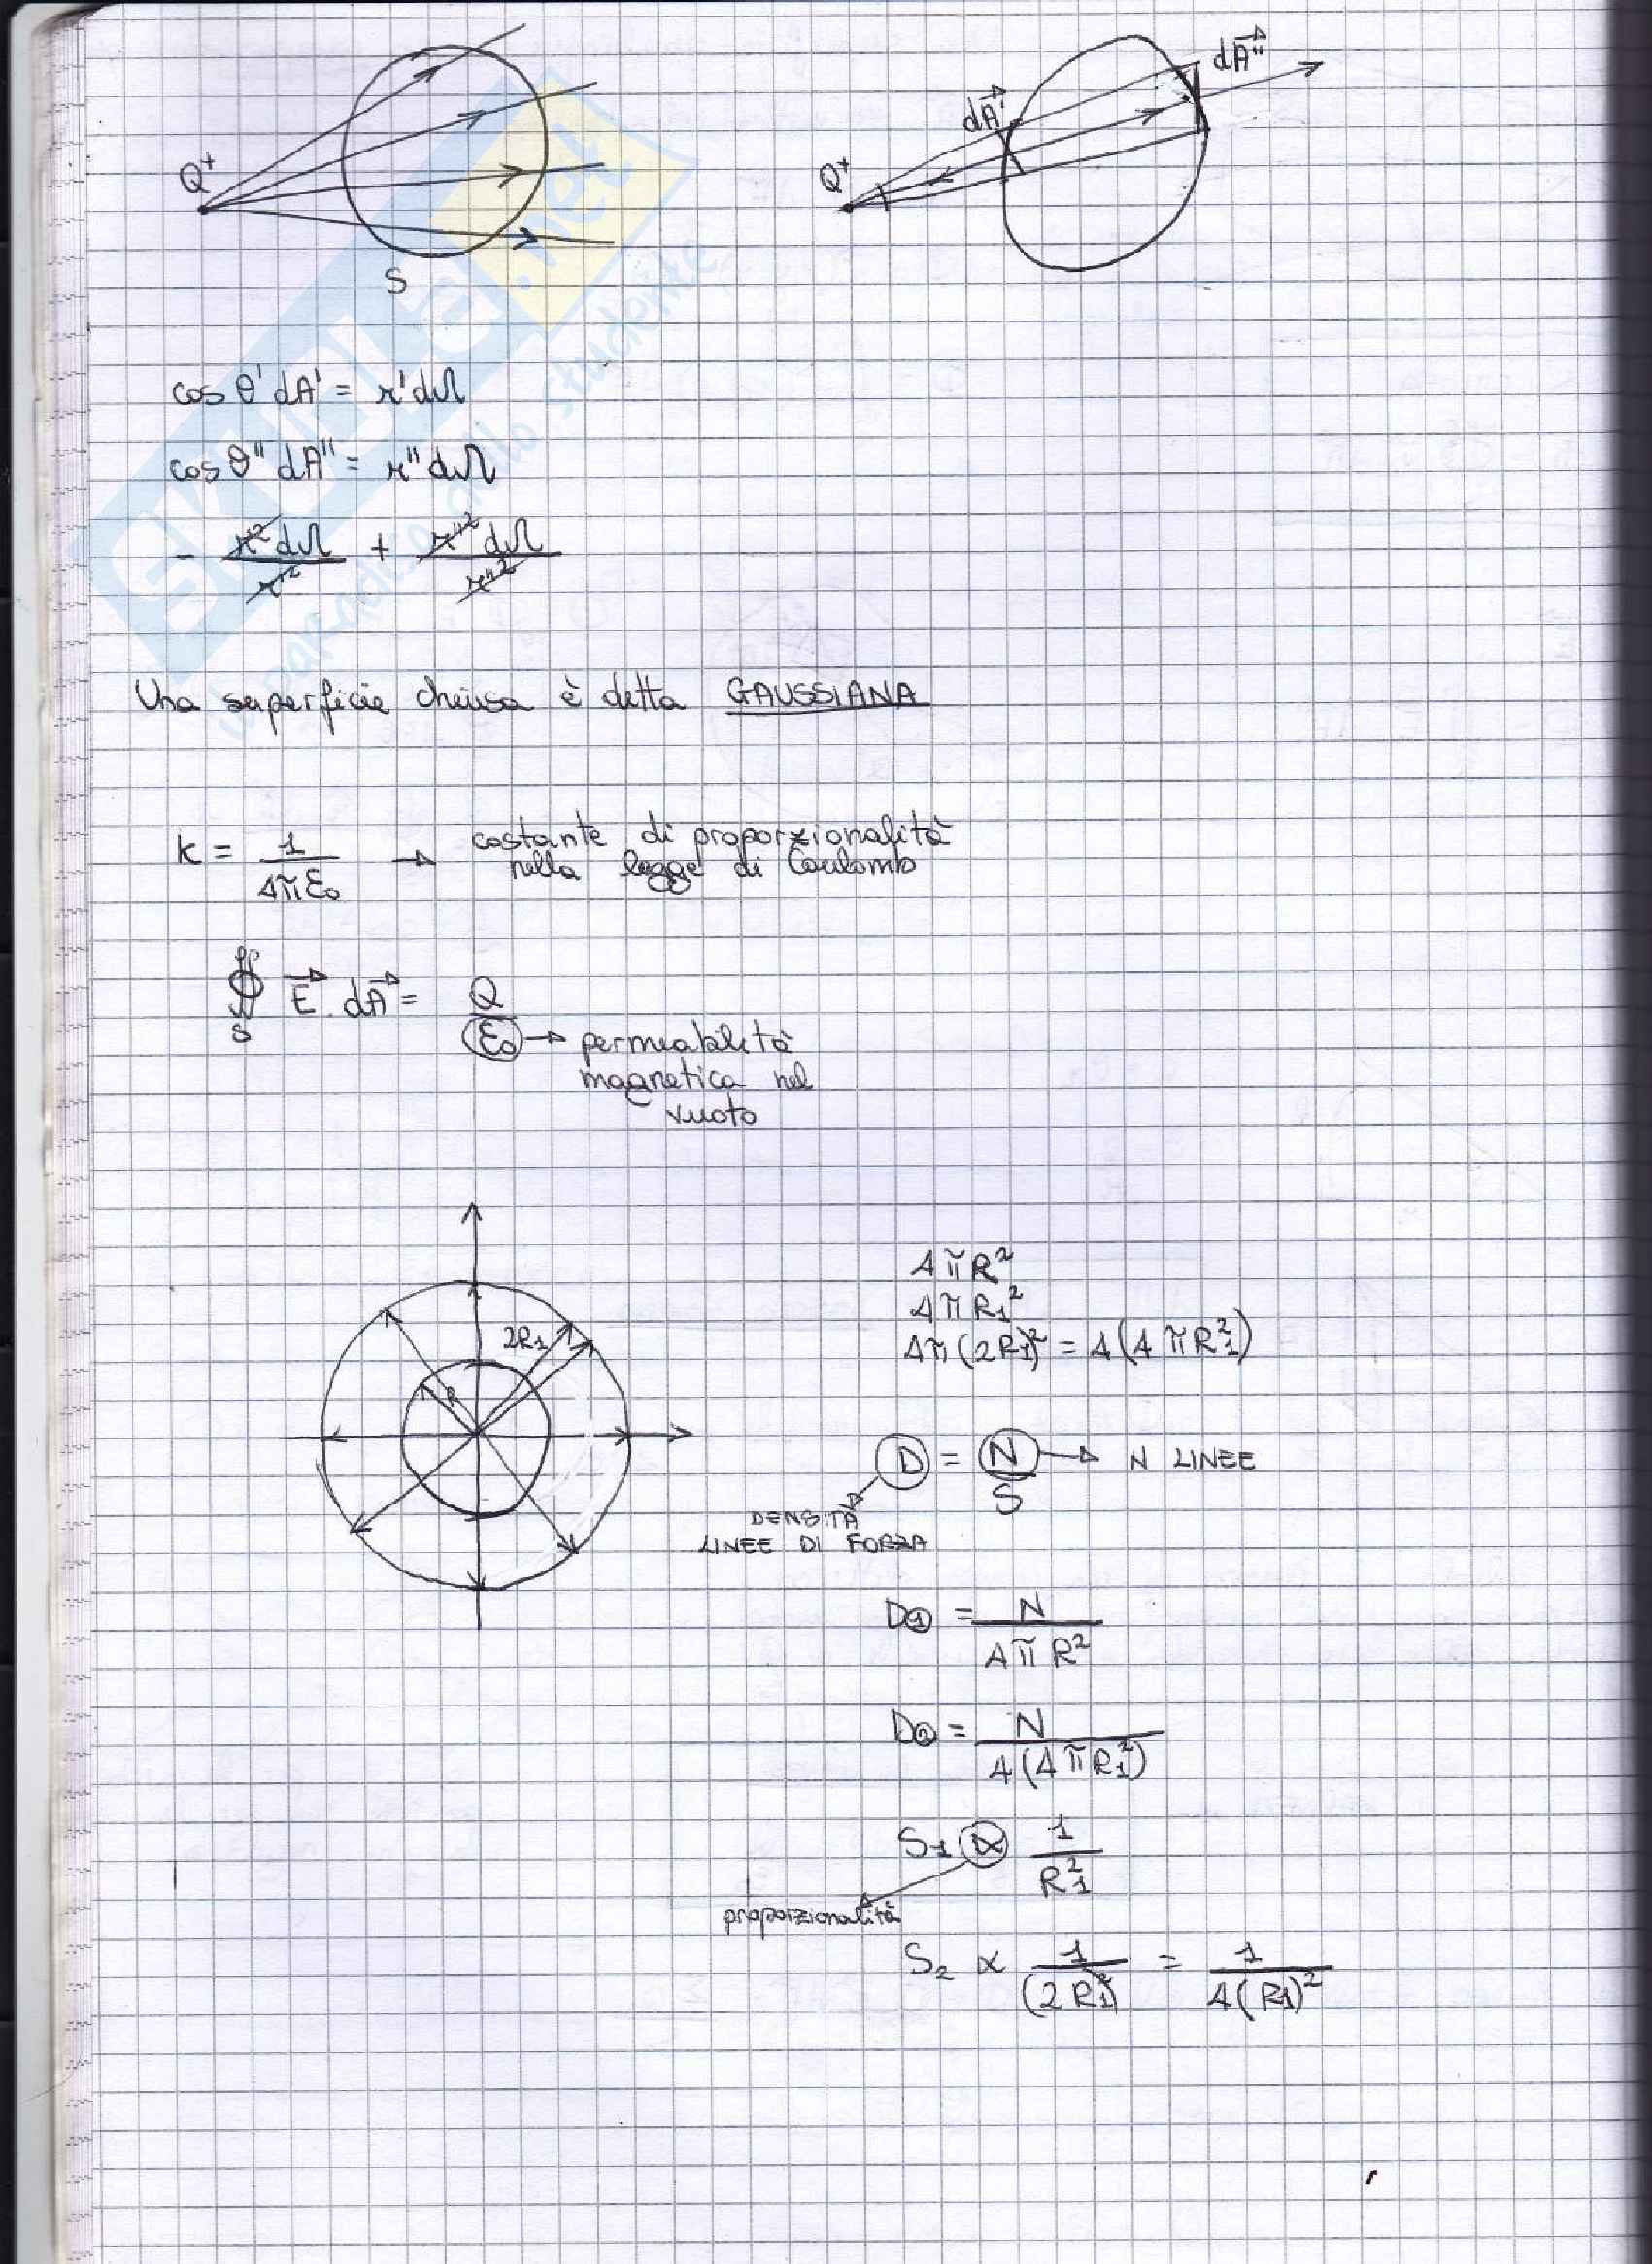 Q⁺
S
Q⁺
dA⃗'
dA⃗"
cos θ' dA' = r' dΩ
cos θ" dA" = r" dΩ
- r'² dΩ / r'² + r"² dΩ / r"²
Una superficie chiusa è detta GAUSSIANA
K = 1 / 4π ε₀ → costante di proporzionalità
nella legge di Coulomb
∯ₛ E⃗ · dA⃗ = Q / ε₀ → permeabilità
magnetica nel
vuoto
2R₁
R
4π R²
4π R₁²
4π (2R₁)² = 4(4π R₁²)
D = N / S → N LINEE
DENSITÀ
LINEE DI FORZA
D① = N / 4π R²
D② = N / 4(4π R₁²)
S₁ ∝ 1 / R₁²
proporzionalità
S₂ ∝ 1 / (2R₁)² = 1 / 4(R₁)²
SKUOLA.net
il paradiso dello studente